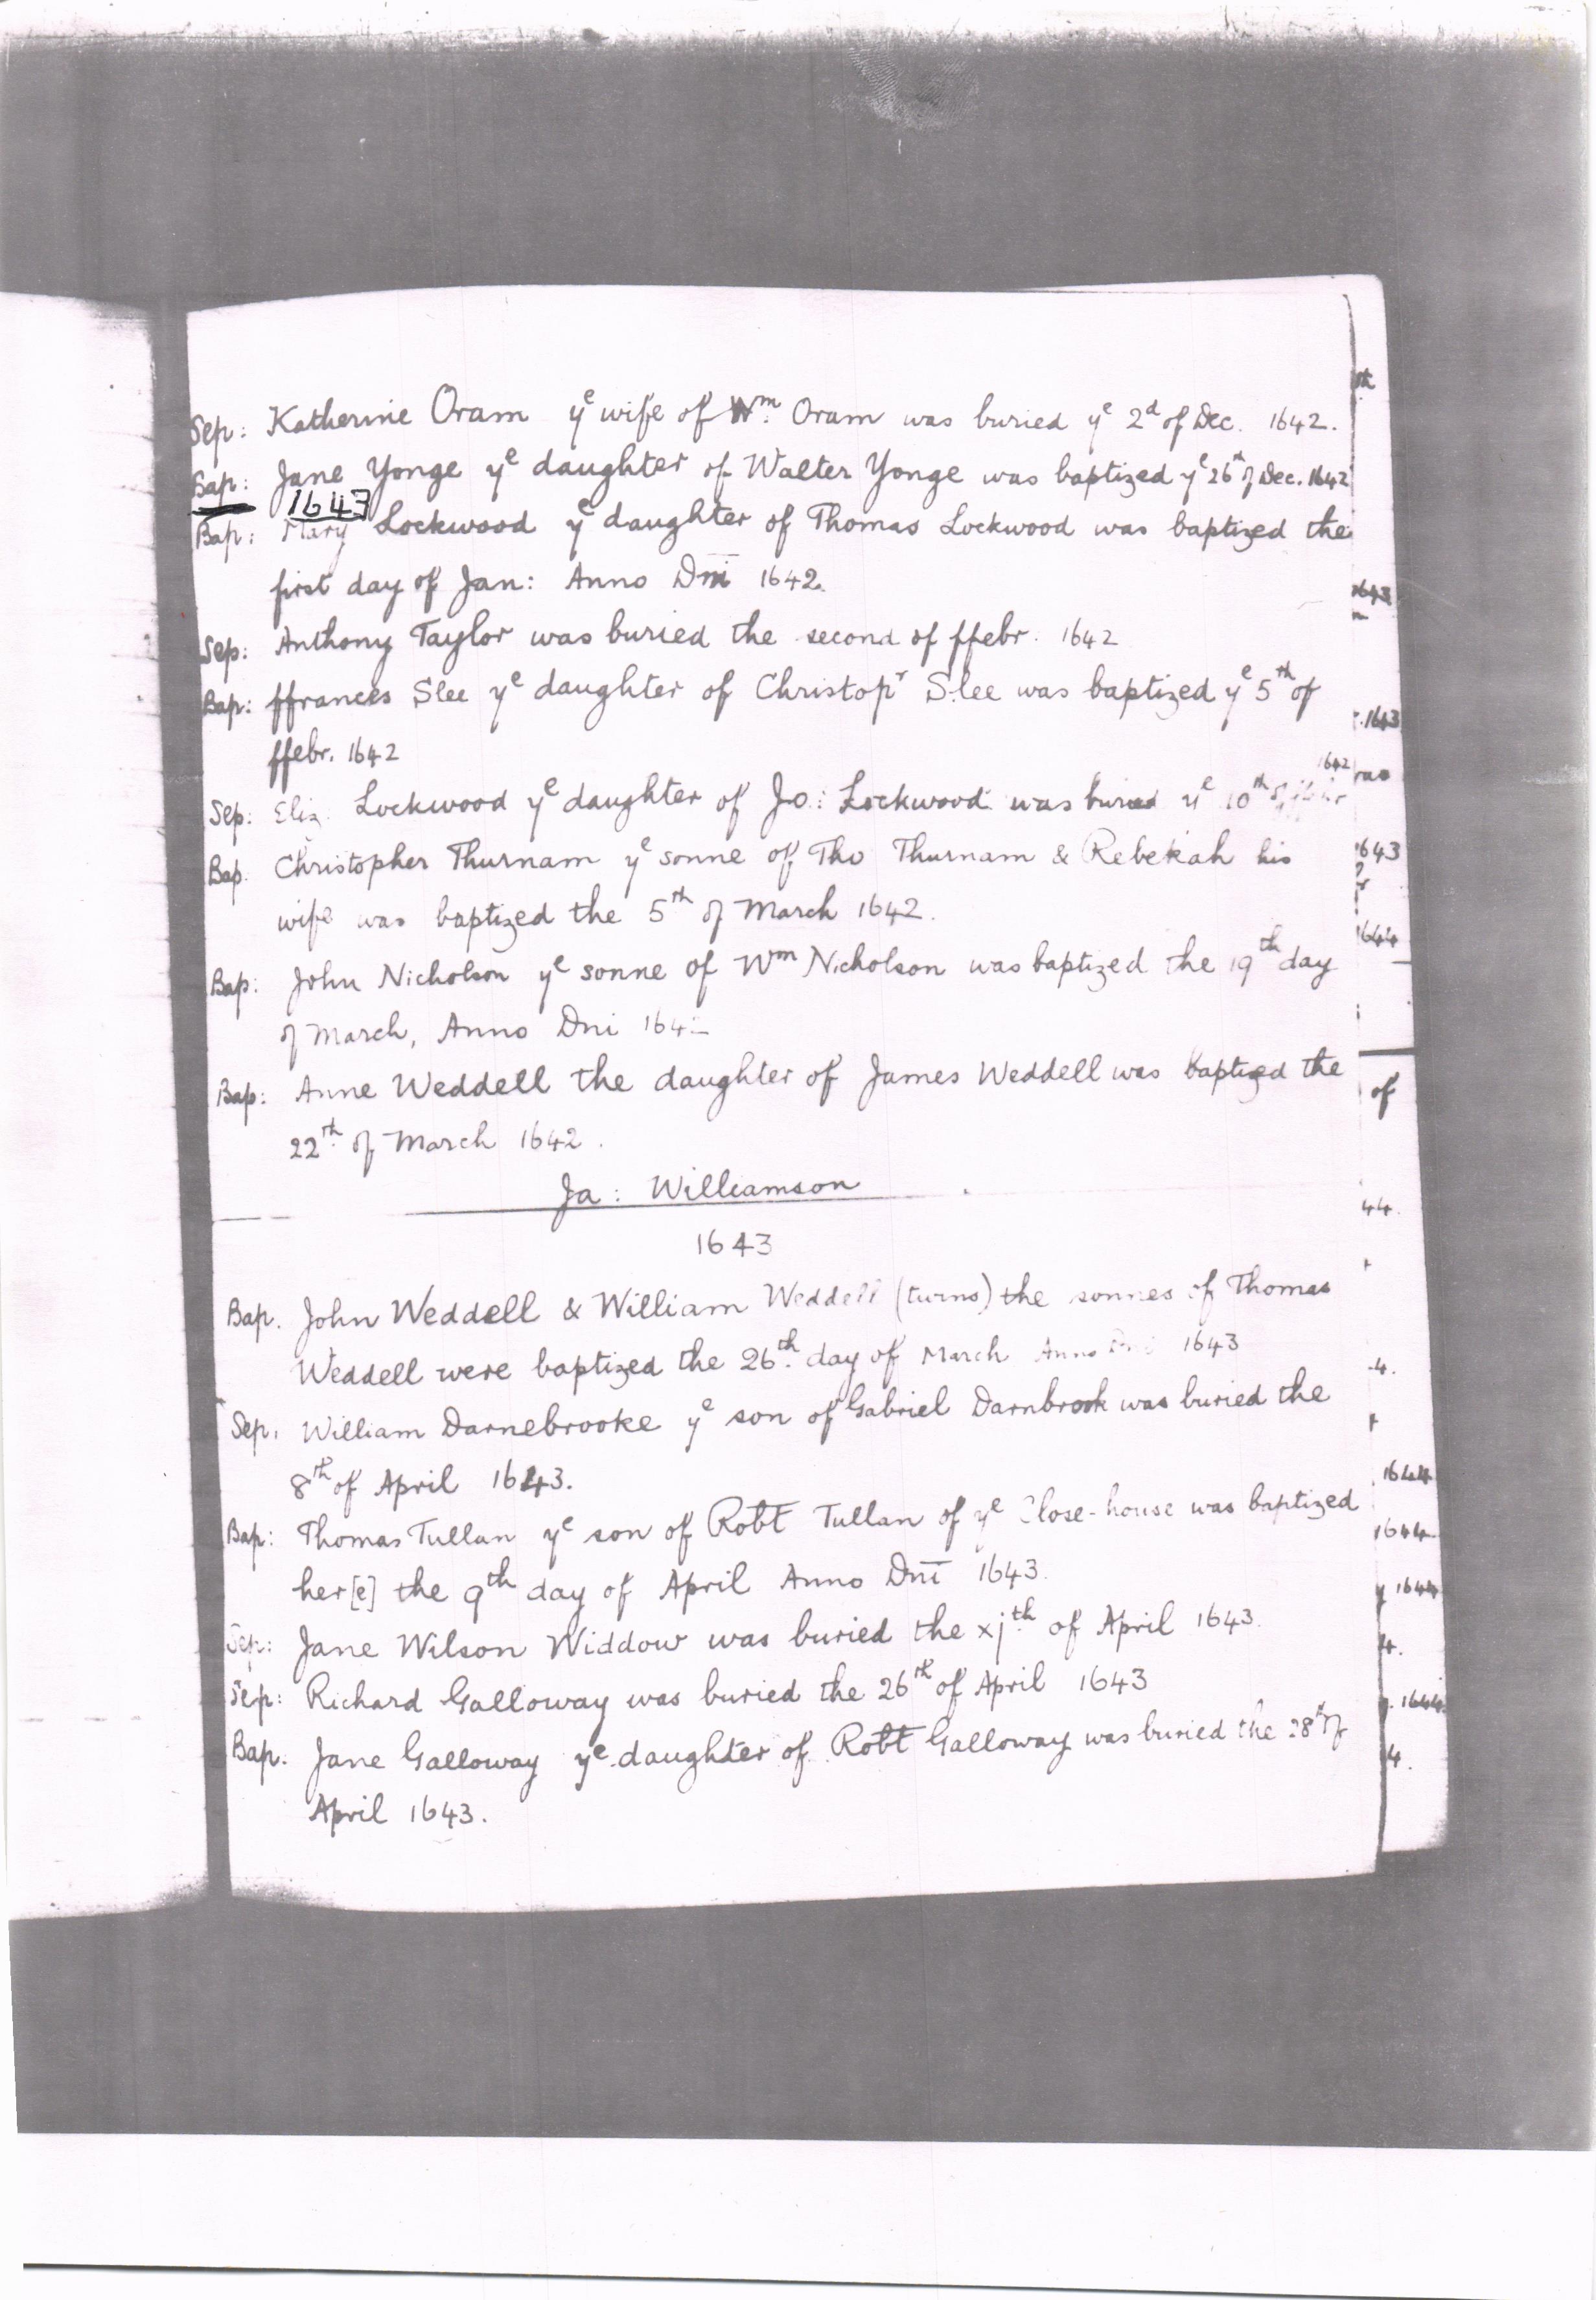 Sep: Katherine Oram yᵉ wife of Wᵐ Oram was buried yᵉ 2ᵈ of Dec. 1642.
Bap: Jane Yonge yᵉ daughter of Walter Yonge was baptized yᵉ 26ᵗʰ of Dec. 1642
1643
Bap: Mary Lockwood yᵉ daughter of Thomas Lockwood was baptized the
first day of Jan: Anno Dni 1642.
Sep: Anthony Taylor was buried the second of ffebr. 1642
Bap: ffrances Slee yᵉ daughter of Christopʳ Slee was baptized yᵉ 5ᵗʰ of
ffebr. 1642
1642
Sep: Eliz. Lockwood yᵉ daughter of Jo: Lockwood was buried yᵉ 10ᵗʰ of
Bap. Christopher Thurnam yᵉ sonne of Tho Thurnam & Rebekah his
wife was baptized the 5ᵗʰ of March 1642.
Bap: John Nicholson yᵉ sonne of Wᵐ Nicholson was baptized the 19ᵗʰ day
of March, Anno Dni
Bap: Anne Weddell the daughter of James Weddell was baptized the
22ᵗʰ of March 1642.
Ja: Williamson
1643
Bap. John Weddell & William Weddell (twins) the sonnes of Thomas
Weddell were baptized the 26ᵗʰ day of March Anno Dni 1643
Sep: William Darnebrooke yᵉ son of Gabriel Darnbrook was buried the
8ᵗʰ of April 1643.
Bap: Thomas Tullan yᵉ son of Robt Tullan of yᵉ Close-house was baptized
her[e] the 9ᵗʰ day of April Anno Dni 1643.
Sep: Jane Wilson Widdow was buried the xjᵗʰ of April 1643.
Sep: Richard Galloway was buried the 26ᵗʰ of April 1643
Bap. Jane Galloway yᵉ daughter of Robt Galloway was buried the 28ᵗʰ of
April 1643.
th
1643
1643
was
1643
1644
of
44.
4.
1644
1644
1644
4.
1644
4.